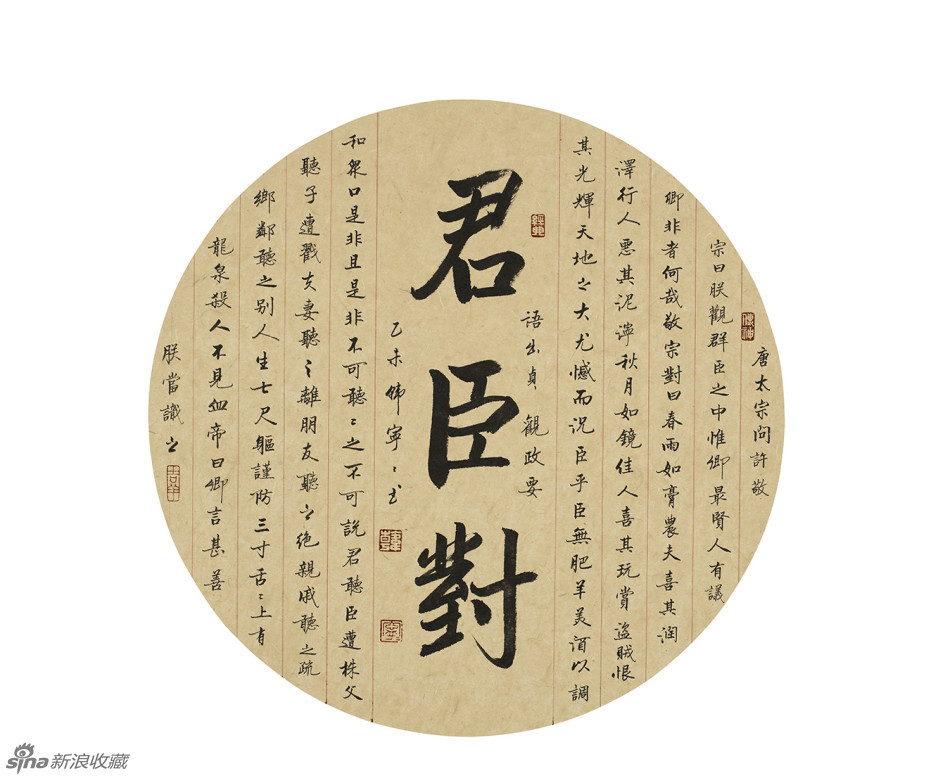 唐太宗問許敬
宗曰朕觀群臣之中惟卿最賢人有議
卿非者何哉敬宗對曰春雨如膏農夫喜其润
澤行人悪其泥濘秋月如鏡佳人喜其玩賞盜賊恨
其光輝天地之大尤憾而况臣乎臣無肥羊美酒以調
語出貞觀政要
君臣對
乙未韩寧〻书
和衆口是非且是非不可聽〻之不可説君聽臣遭株父
聽子遭戳夫妻聽〻離朋友聽之绝親戚聽之疏
鄉鄰聽之别人生七尺軀謹防三寸舌〻上有
龍泉殺人不見血帝曰卿言甚善
朕當識之
sina新浪收藏